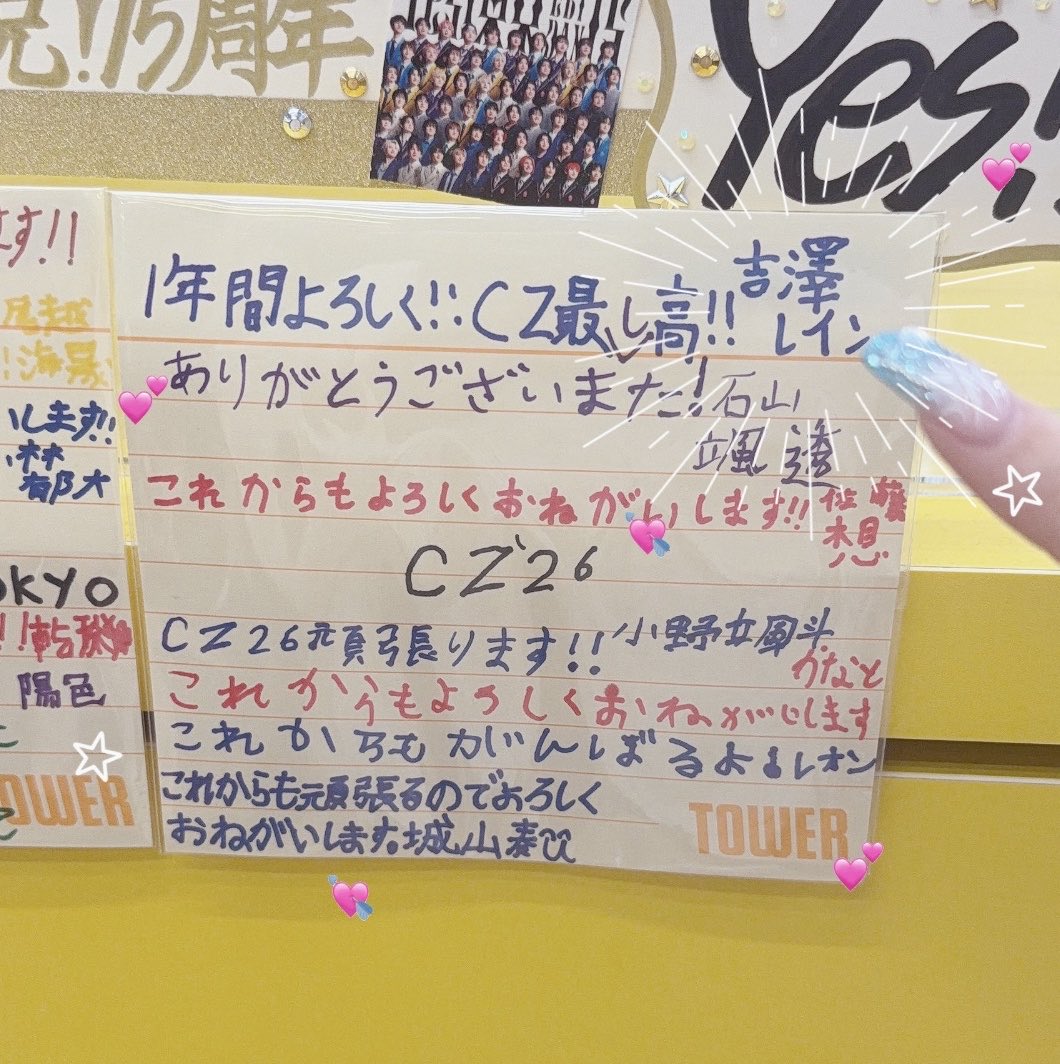 !15周年
Yes!
ます!!
尾越
!海
します!!
林
郁大
OKYO
陽色
TOWER
1年間よろしく!! CZ最し高!! 吉澤
レイン
ありがとうございまた! 石山
颯 透
これからもよろしくおねがいします!! 佐藤
想
CZ'26
CZ26頑張ります!! 小野立風斗
かなと
これからもよろしくおねがいします
これからもがんばるよ レオン
これからも頑張るのでよろしく
おねがいします。城山泰
TOWER